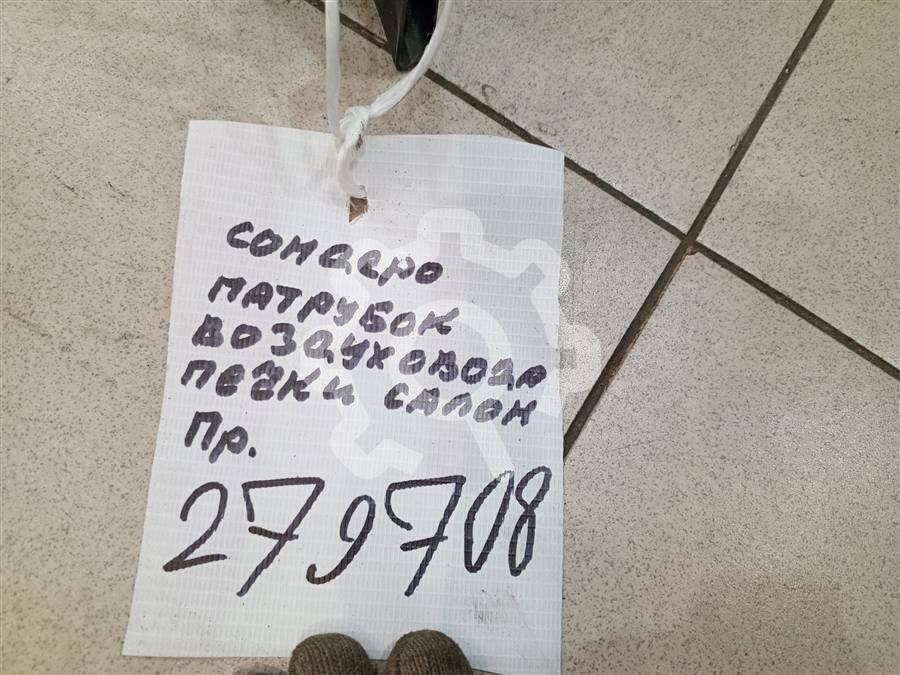 сомдеро
патрубок
воздуховода
печки салон
Пр.
279708